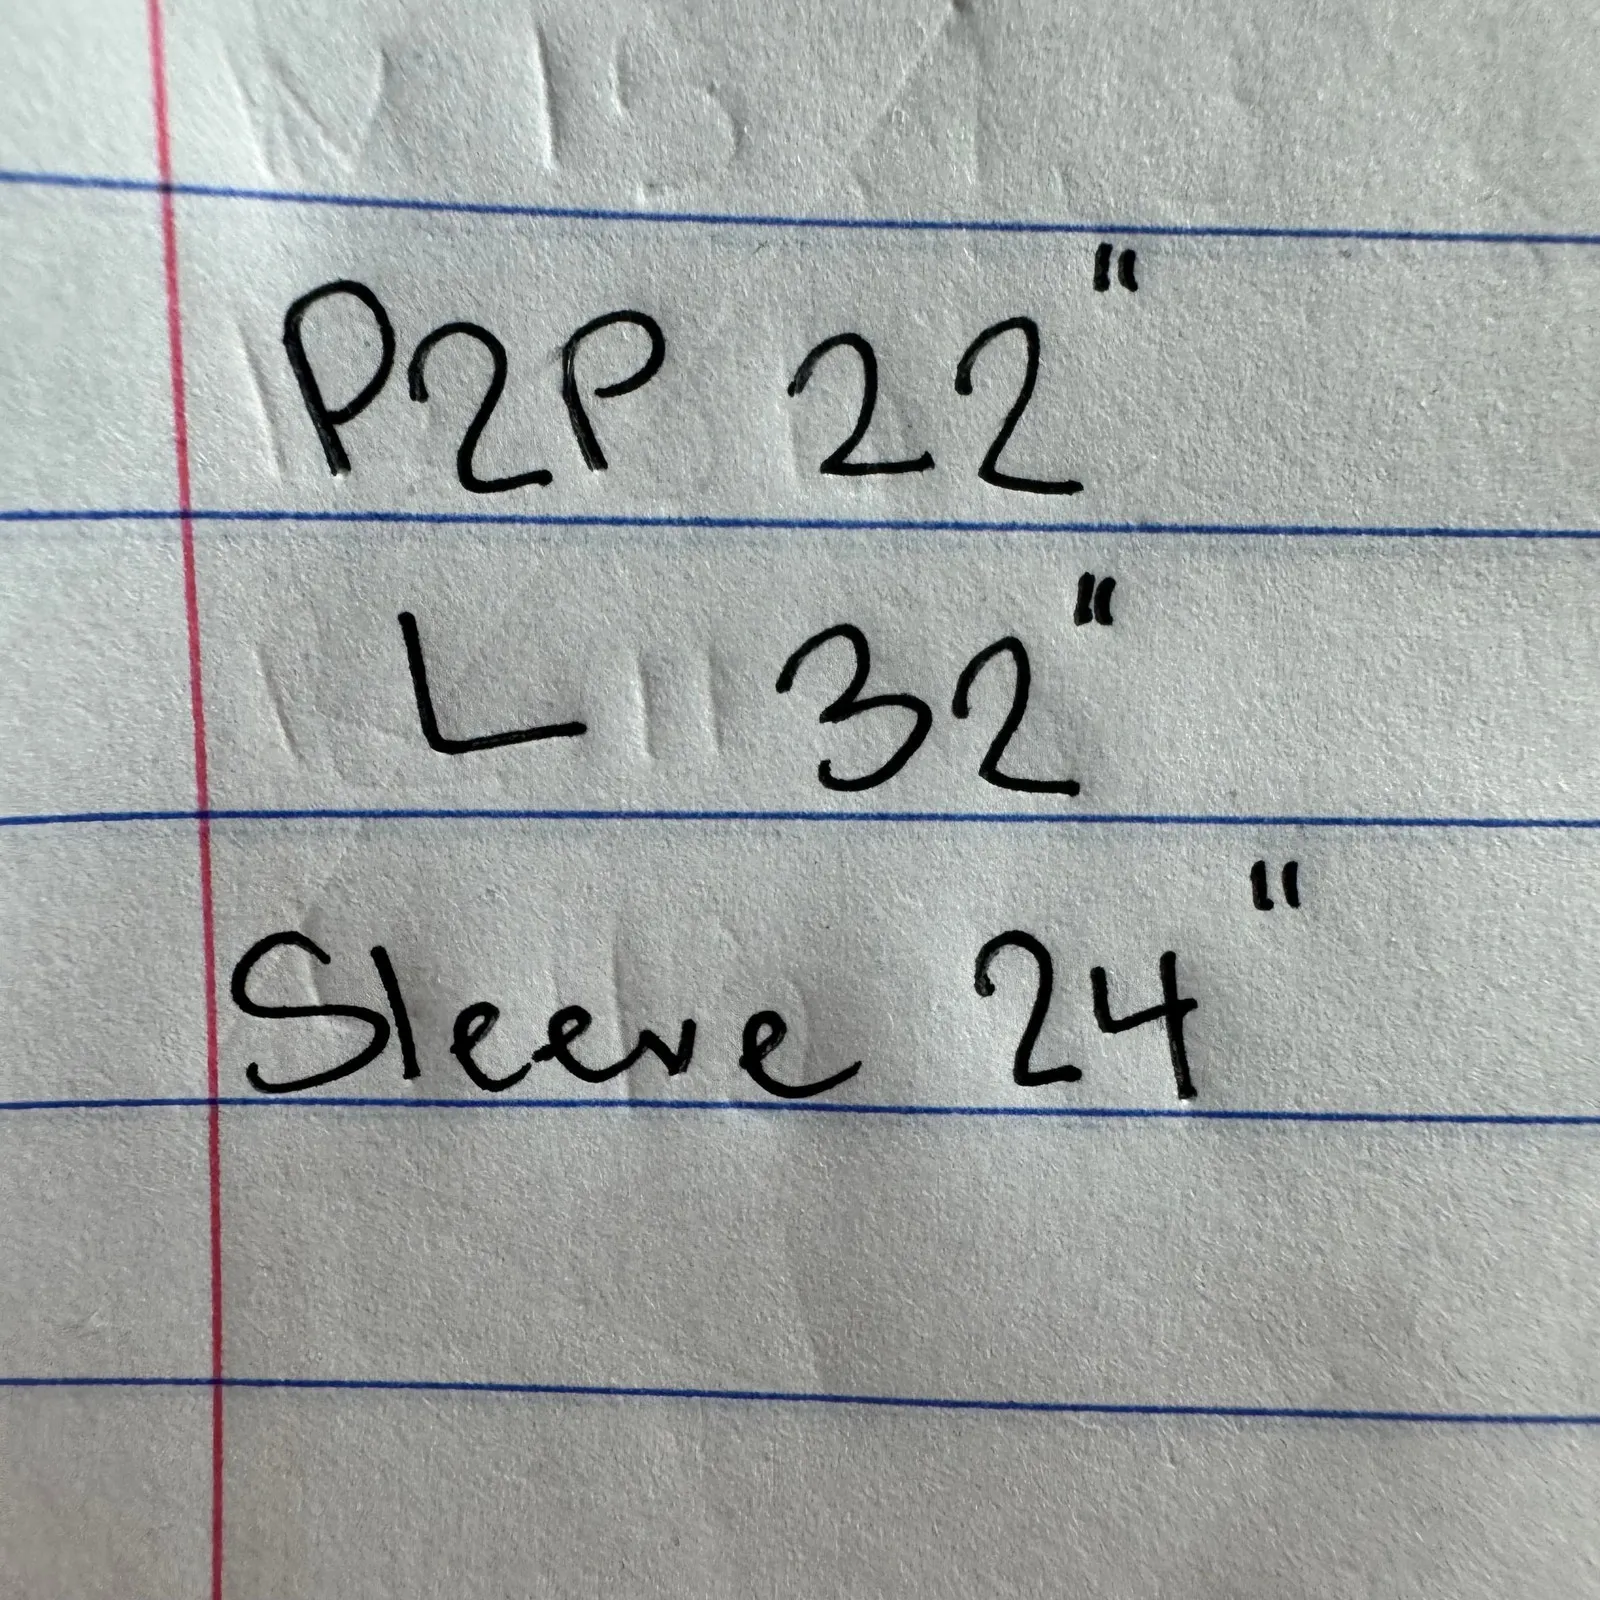 P2P 22"
L 32"
Sleeve 24"